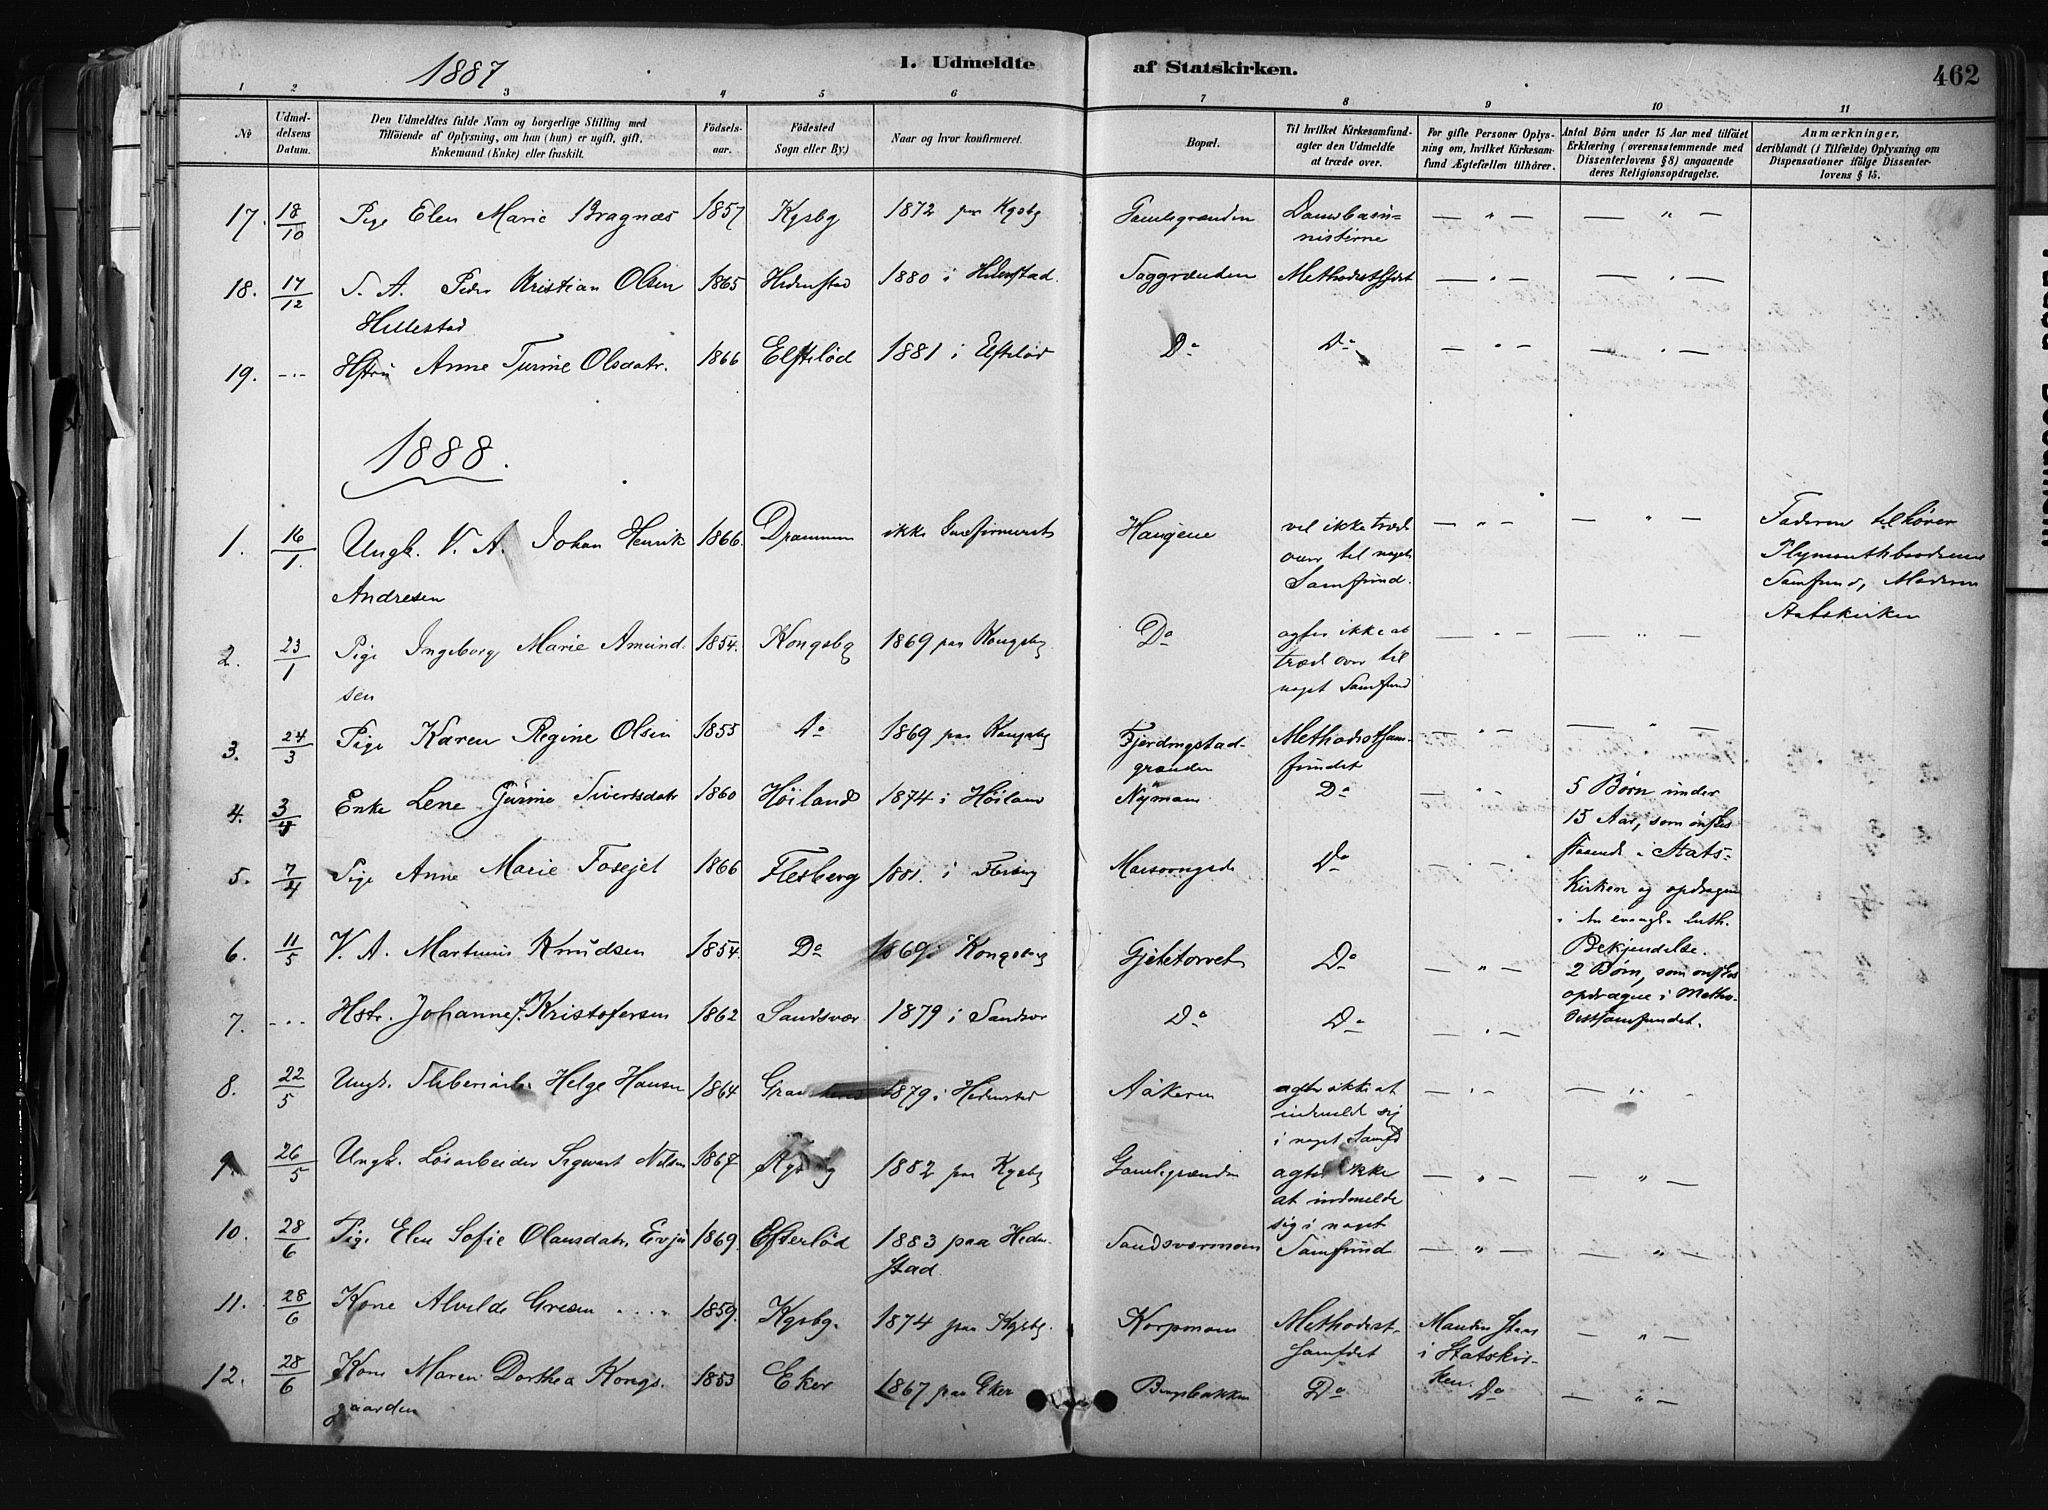 1887
I. Udmeldte af Statskirken.
462
1 2 3 4 5 6 7 8 9 10 11
No
Udmel-
delsens
Datum.
Den Udmeldtes fulde Navn og borgerlige Stilling med
Tilføiende af Oplysning, om han (hun) er ugift, gift,
Enkemand (Enke) eller fraskilt.
Fødsels-
aar.
Fødested
Sogn eller By.)
Naar og hvor konfirmeret.
Bopæl.
Til hvilket Kirkesamfund
agter den Udmeldte
at træde over.
For gifte Personer Oplys-
ning om, hvilket Kirkesam-
fund Ægtefællen tilhører.
Antal Børn under 15 Aar med tilføiet
Erklæring (overensstemmende med
Dissenterlovens § 8) angaaende
deres Religionsopdragelse.
Anmærkninger,
deriblandt (i Tilfælde) Oplysning om
Dispensationer ifølge Dissenter-
lovens § 15.
17. 18/10 Pige Elen Marie Bragnæs 1857 Kgsby 1872 paa Kgsbg Gamlegrænden — " — — " —
18. 17/12 Peder Kristian Olsen 1865 Hedenstad 1880 i Hedenstad — " — — " —
Hillestad
19. -..- Hstru Anne Turine Olsdatr. 1866 Efteløt 1881 i Efteløt Do Do — " — — " —
1888.
1. 16/1 Ungk. V. A. Johan Henrik 1866. Drammen ikke Haugene vil ikke træde — " — — " — Faderen tilhører
Andresen over til noget Plymouthbrødrenes
Samfund. Samfund, Moderen
Statskirken
2. 23/1 Pige Ingeborg Marie Amund- 1854. Kongsbg 1869 paa Kongsbg Do agter ikke at — " — — "
sen træd over til
noget Samfund
3. 24/3 Pige Karen Regine Olsen 1855 Do 1869 paa Kongsbg Fjerdingstad- Methodistsam- — " — — " —
grænden fundet
4. 3/4 Enke Lene Gurine Sivertsdatr 1860 Høiland 1874 i Høiland Nymoen Do — " — 5 Børn under
15 Aar, som ønskes
staaende i Stats-
5. 7/4 Pige Anne Marie Fosejet 1866 Flesberg 1881. i Flesberg Do
kirken og opdragne
i den evangl. luth.
Bekjendelse.
6. 11/5 V. A. Martinus Knudsen 1854. Do 1869 i Kongsberg Gjetetorvet Do — " — 2 Børn, som ønskes
opdragne i Metho-
distsamfundet.
7. -..- Hstr. Johanne f. Kristofersen 1862 Sandsvær 1879 i Sandsvr Do Do — " —
8. 22/5 Ungk. Helge Hansen 1864 1879 i Hedenstad Aakeren agter ikke at — " — — " —
indmelde sig
i noget Samfd
9. 26/5 Ungk. Løsarbeider Sigwart Nilsen 1867 Kgsbg 1882 paa Kgsbg Gamlegrænden agter ikke — " — — " —
at indmelde
sig i noget
10. 28/6 Pige Elen Sofie Olausdatr. Evju 1869. Efterlød 1883 paa Heden- Sandsværmoen Samfund — " — — " —
stad
11. 28/6 Kone Alvilde Gresen 1859. Kgsbg. 1874 paa Kgsbg. Korpmoen Methodist- Manden staar — " —
samfdet i Statskir-
ken.
12. 28/6 Kone Maren Dorthea Kongs- 1853 Eker 1867 paa Eker Do Do — " —
gaarden